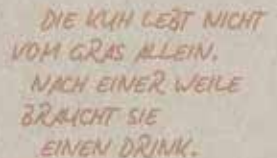 DIE KUH LEBT NICHT
VOM GRAS ALLEIN.
NACH EINER WEILE
BRAUCHT SIE
EINEN DRINK.